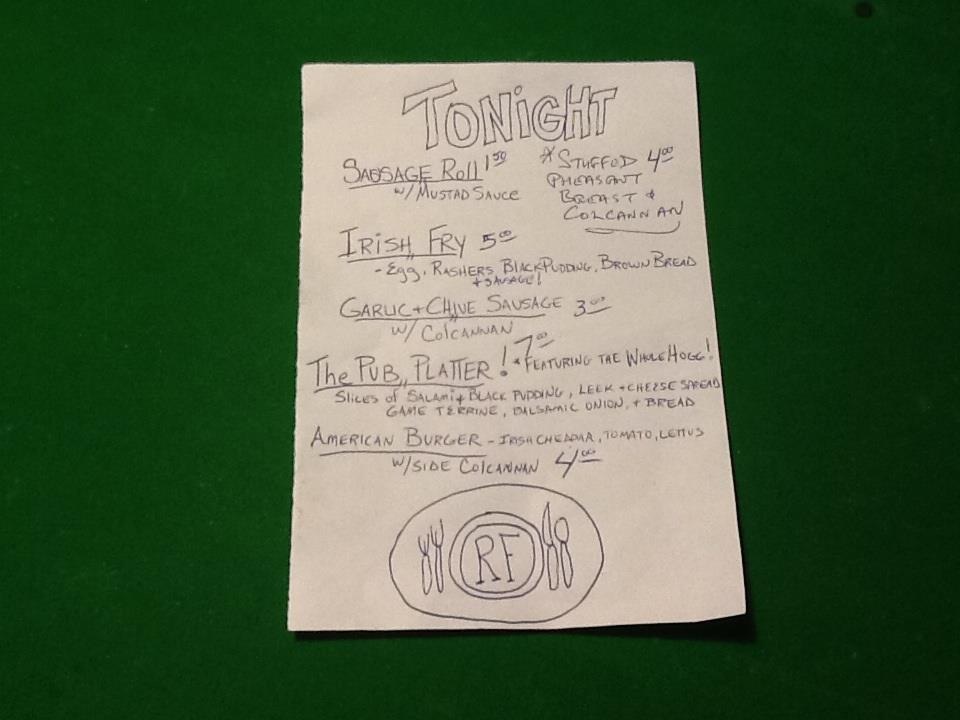 TONiGHT
SAUSAGE Roll 1 50
w/ MUSTAD SAUCE
* STUFFOD 4 00
PHEASANT
BREAST +
COLCANNAN
IRiSH FRY 5 00
- Egg, RASHERS BLACK PUDDING, BROWN BREAD
+ SAUSAGE!
GARLIC + CHIVE SAUSAGE 3 00
w/ COlCANNAN
The PUB PLATTER! 7 00 * FEATURING THE WHOLE HOGG!
Slices of SALAMI + BLACK PUDDING, LEEK + CHEESE SPREAD
GAME TERRINE, BALSAMIC ONION, + BREAD
AMERICAN BURGER - IRISH CHEADAR, TOMATO, LETTUS
W/SIDE COlCANNAN 4 00
RF